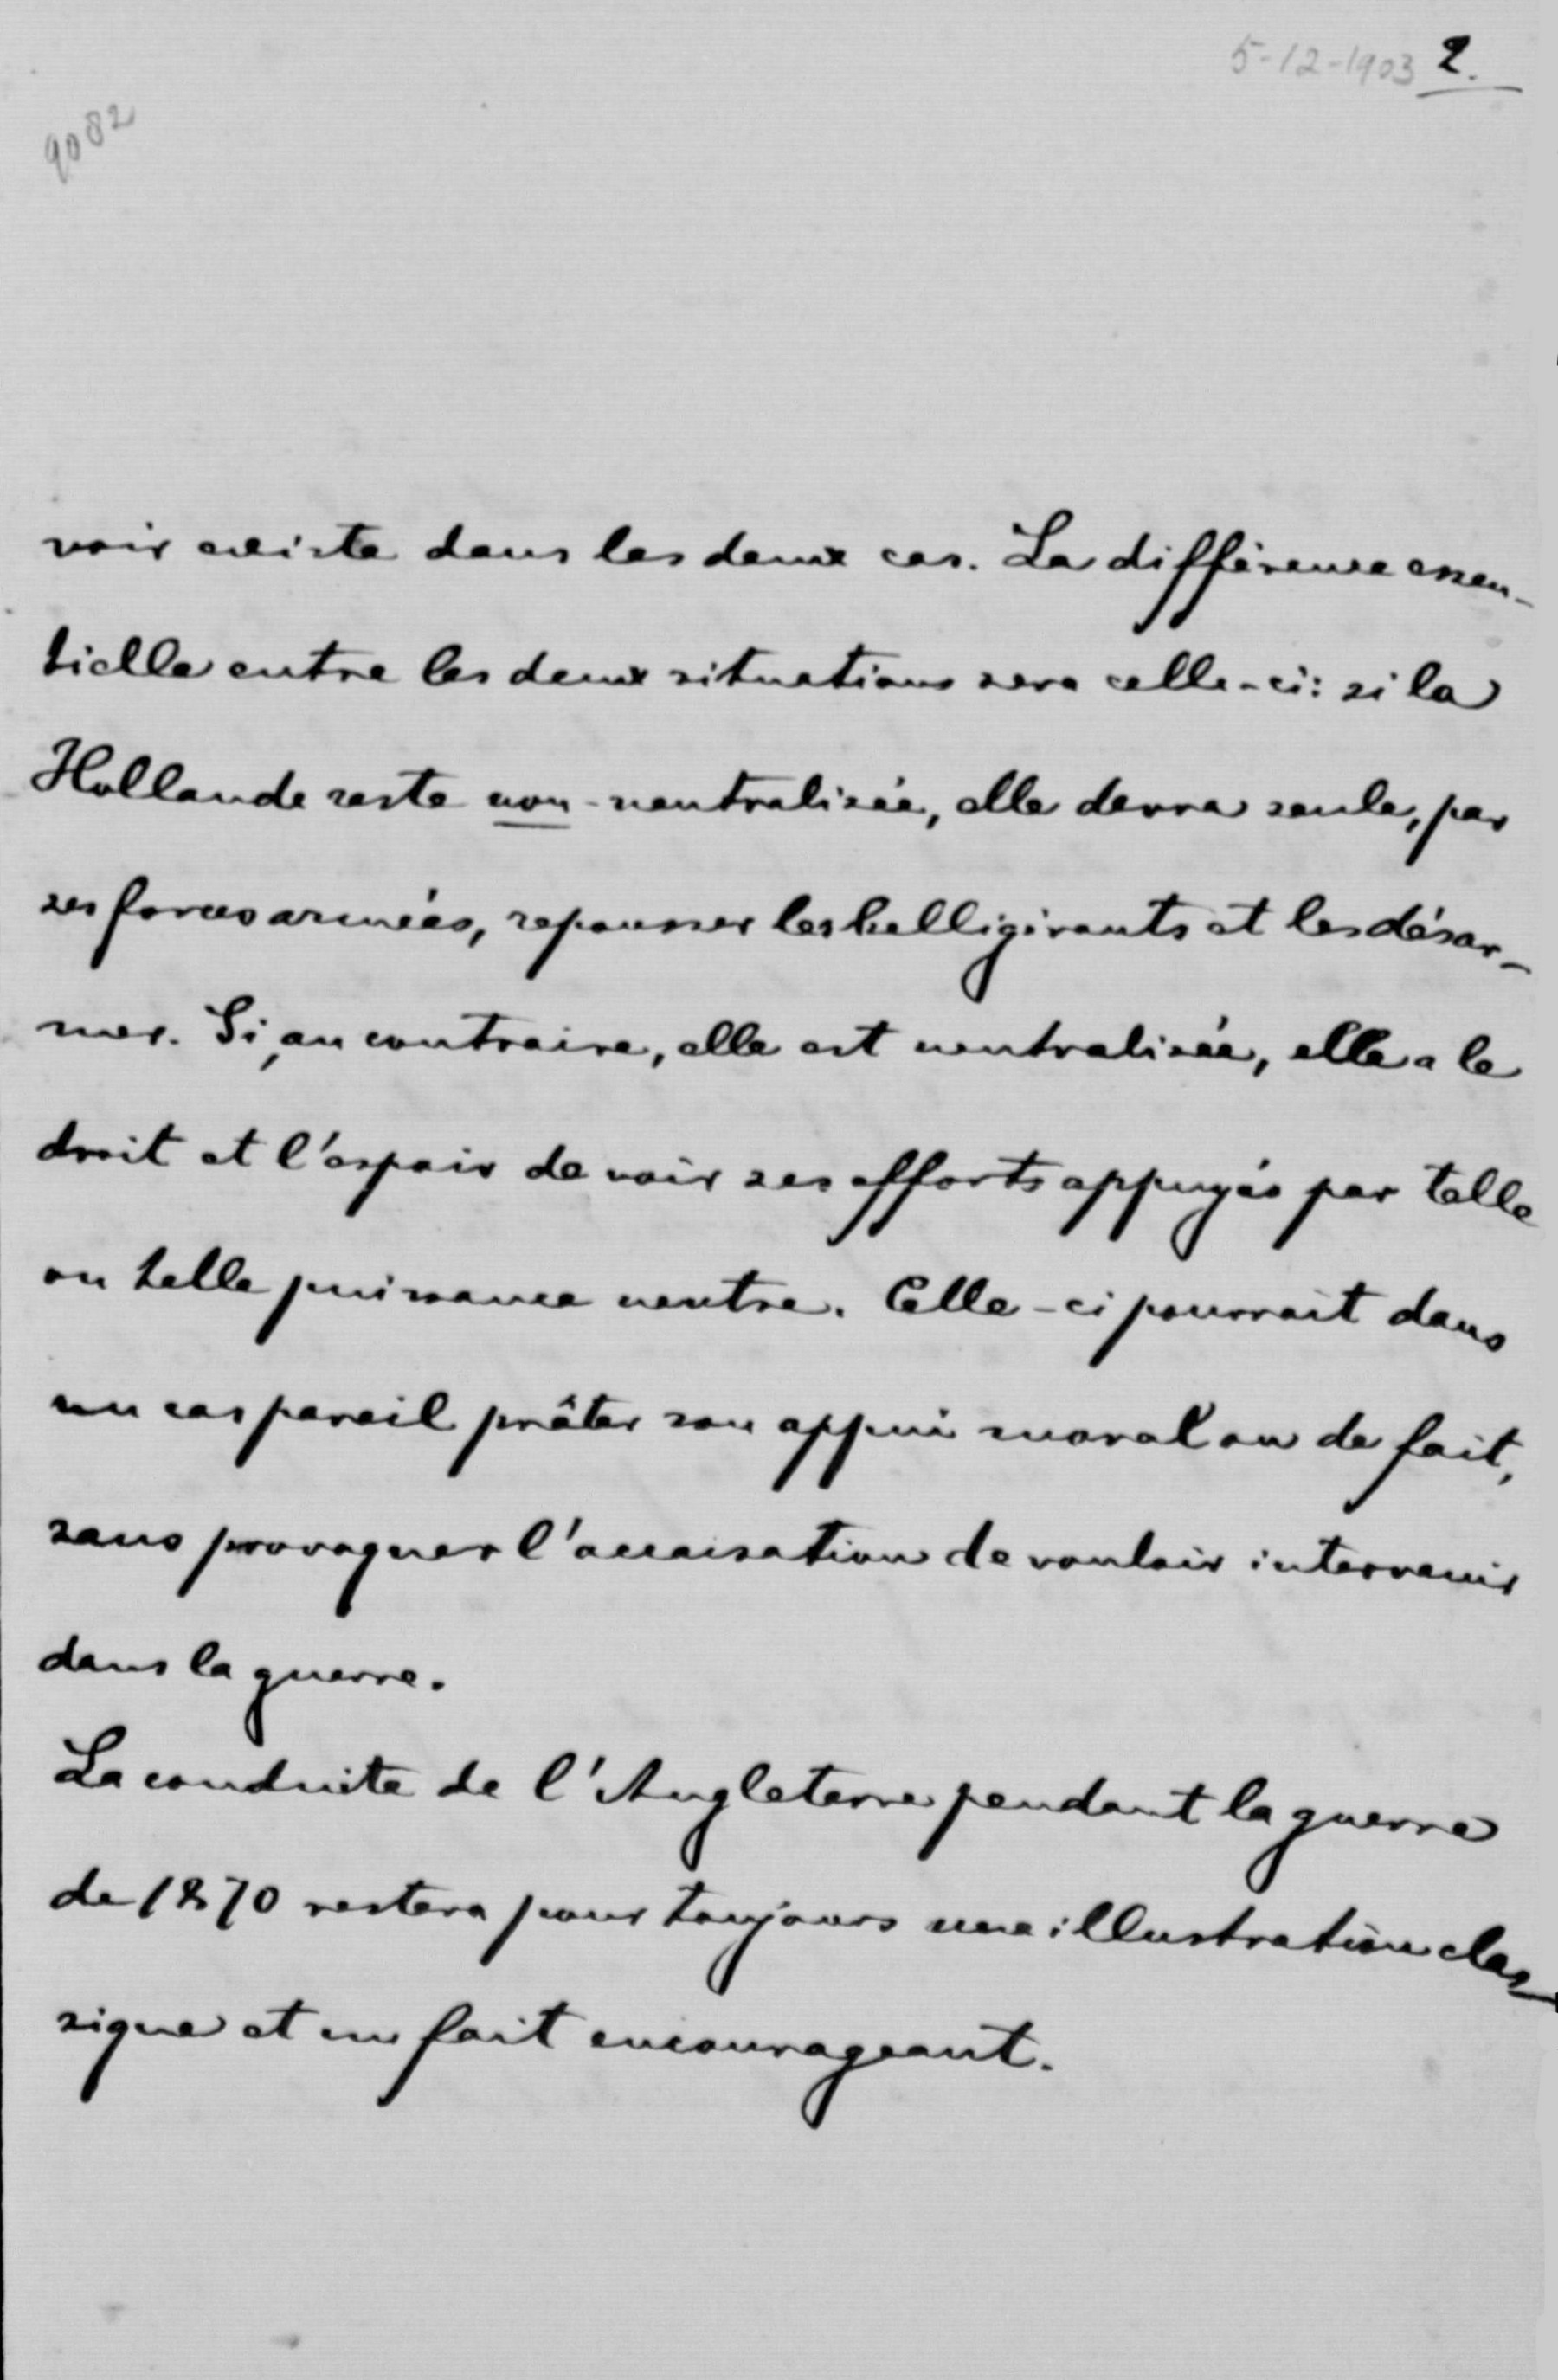 5-12-1903 2.
9082
voir existe dans les deux cas. La différence essen-
tielle entre les deux situations sera celle-ci: si la
Hollande reste non-neutralisée, elle devra seule, par
ses forces armées, repousser les belligérants et les désar-
mer. Si, au contraire, elle est neutralisée, elle a le
droit et l'espoir de voir ses efforts appuyés par telle
ou telle puissance neutre. Celle-ci pourrait dans
un cas pareil prêter son appui moral ou de fait,
sans provoquer l'accusation de vouloir intervenir
dans la guerre.
La conduite de l'Angleterre pendant la guerre
de 1870 restera pour toujours une illustration clas-
sique et un fait encourageant.